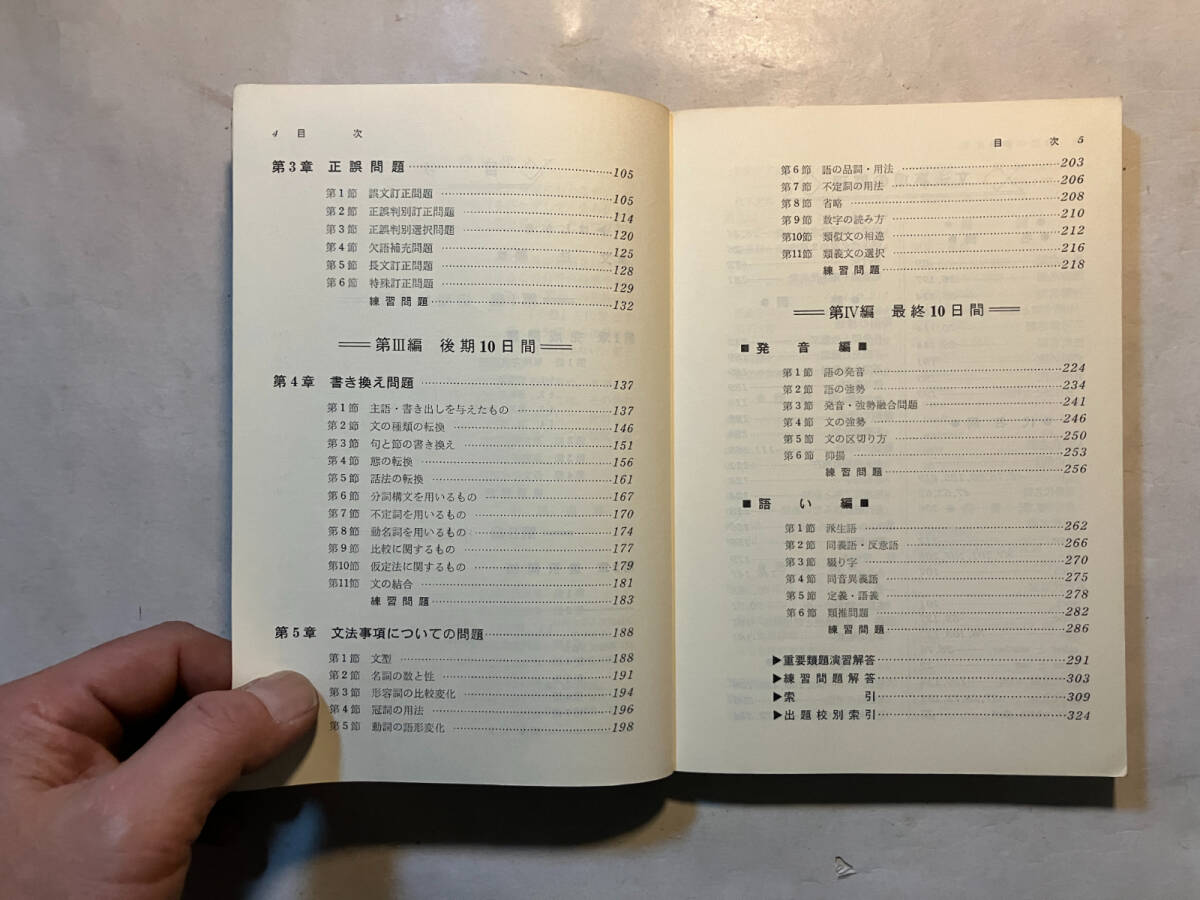 4 目 次
第3章 正誤問題……105
第1節 誤文訂正問題……105
第2節 正誤判別訂正問題……114
第3節 正誤判別選択問題……120
第4節 欠語補充問題……125
第5節 長文訂正問題……128
第6節 特殊訂正問題……129
練習問題……132
第III編 後期10日間
第4章 書き換え問題……137
第1節 主語・書き出しを与えたもの……137
第2節 文の種類の転換……146
第3節 句と節の書き換え……151
第4節 態の転換……156
第5節 話法の転換……161
第6節 分詞構文を用いるもの……167
第7節 不定詞を用いるもの……170
第8節 動名詞を用いるもの……174
第9節 比較に関するもの……177
第10節 仮定法に関するもの……179
第11節 文の結合……181
練習問題……183
第5章 文法事項についての問題……188
第1節 文型……188
第2節 名詞の数と性……191
第3節 形容詞の比較変化……194
第4節 冠詞の用法……196
第5節 動詞の語形変化……198
目 次 5
第6節 語の品詞・用法……203
第7節 不定詞の用法……206
第8節 省略……208
第9節 数字の読み方……210
第10節 類似文の相違……212
第11節 類義文の選択……216
練習問題……218
第IV編 最終10日間
■発音編■
第1節 語の発音……224
第2節 語の強勢……234
第3節 発音・強勢融合問題……241
第4節 文の強勢……246
第5節 文の区切り方……250
第6節 抑揚……253
練習問題……256
■語い編■
第1節 派生語……262
第2節 同義語・反意語……266
第3節 綴り字……270
第4節 同音異義語……275
第5節 定義・語義……278
第6節 類推問題……282
練習問題……286
▶重要類題演習解答……291
▶練習問題解答……303
▶索引……309
▶出題校別索引……324